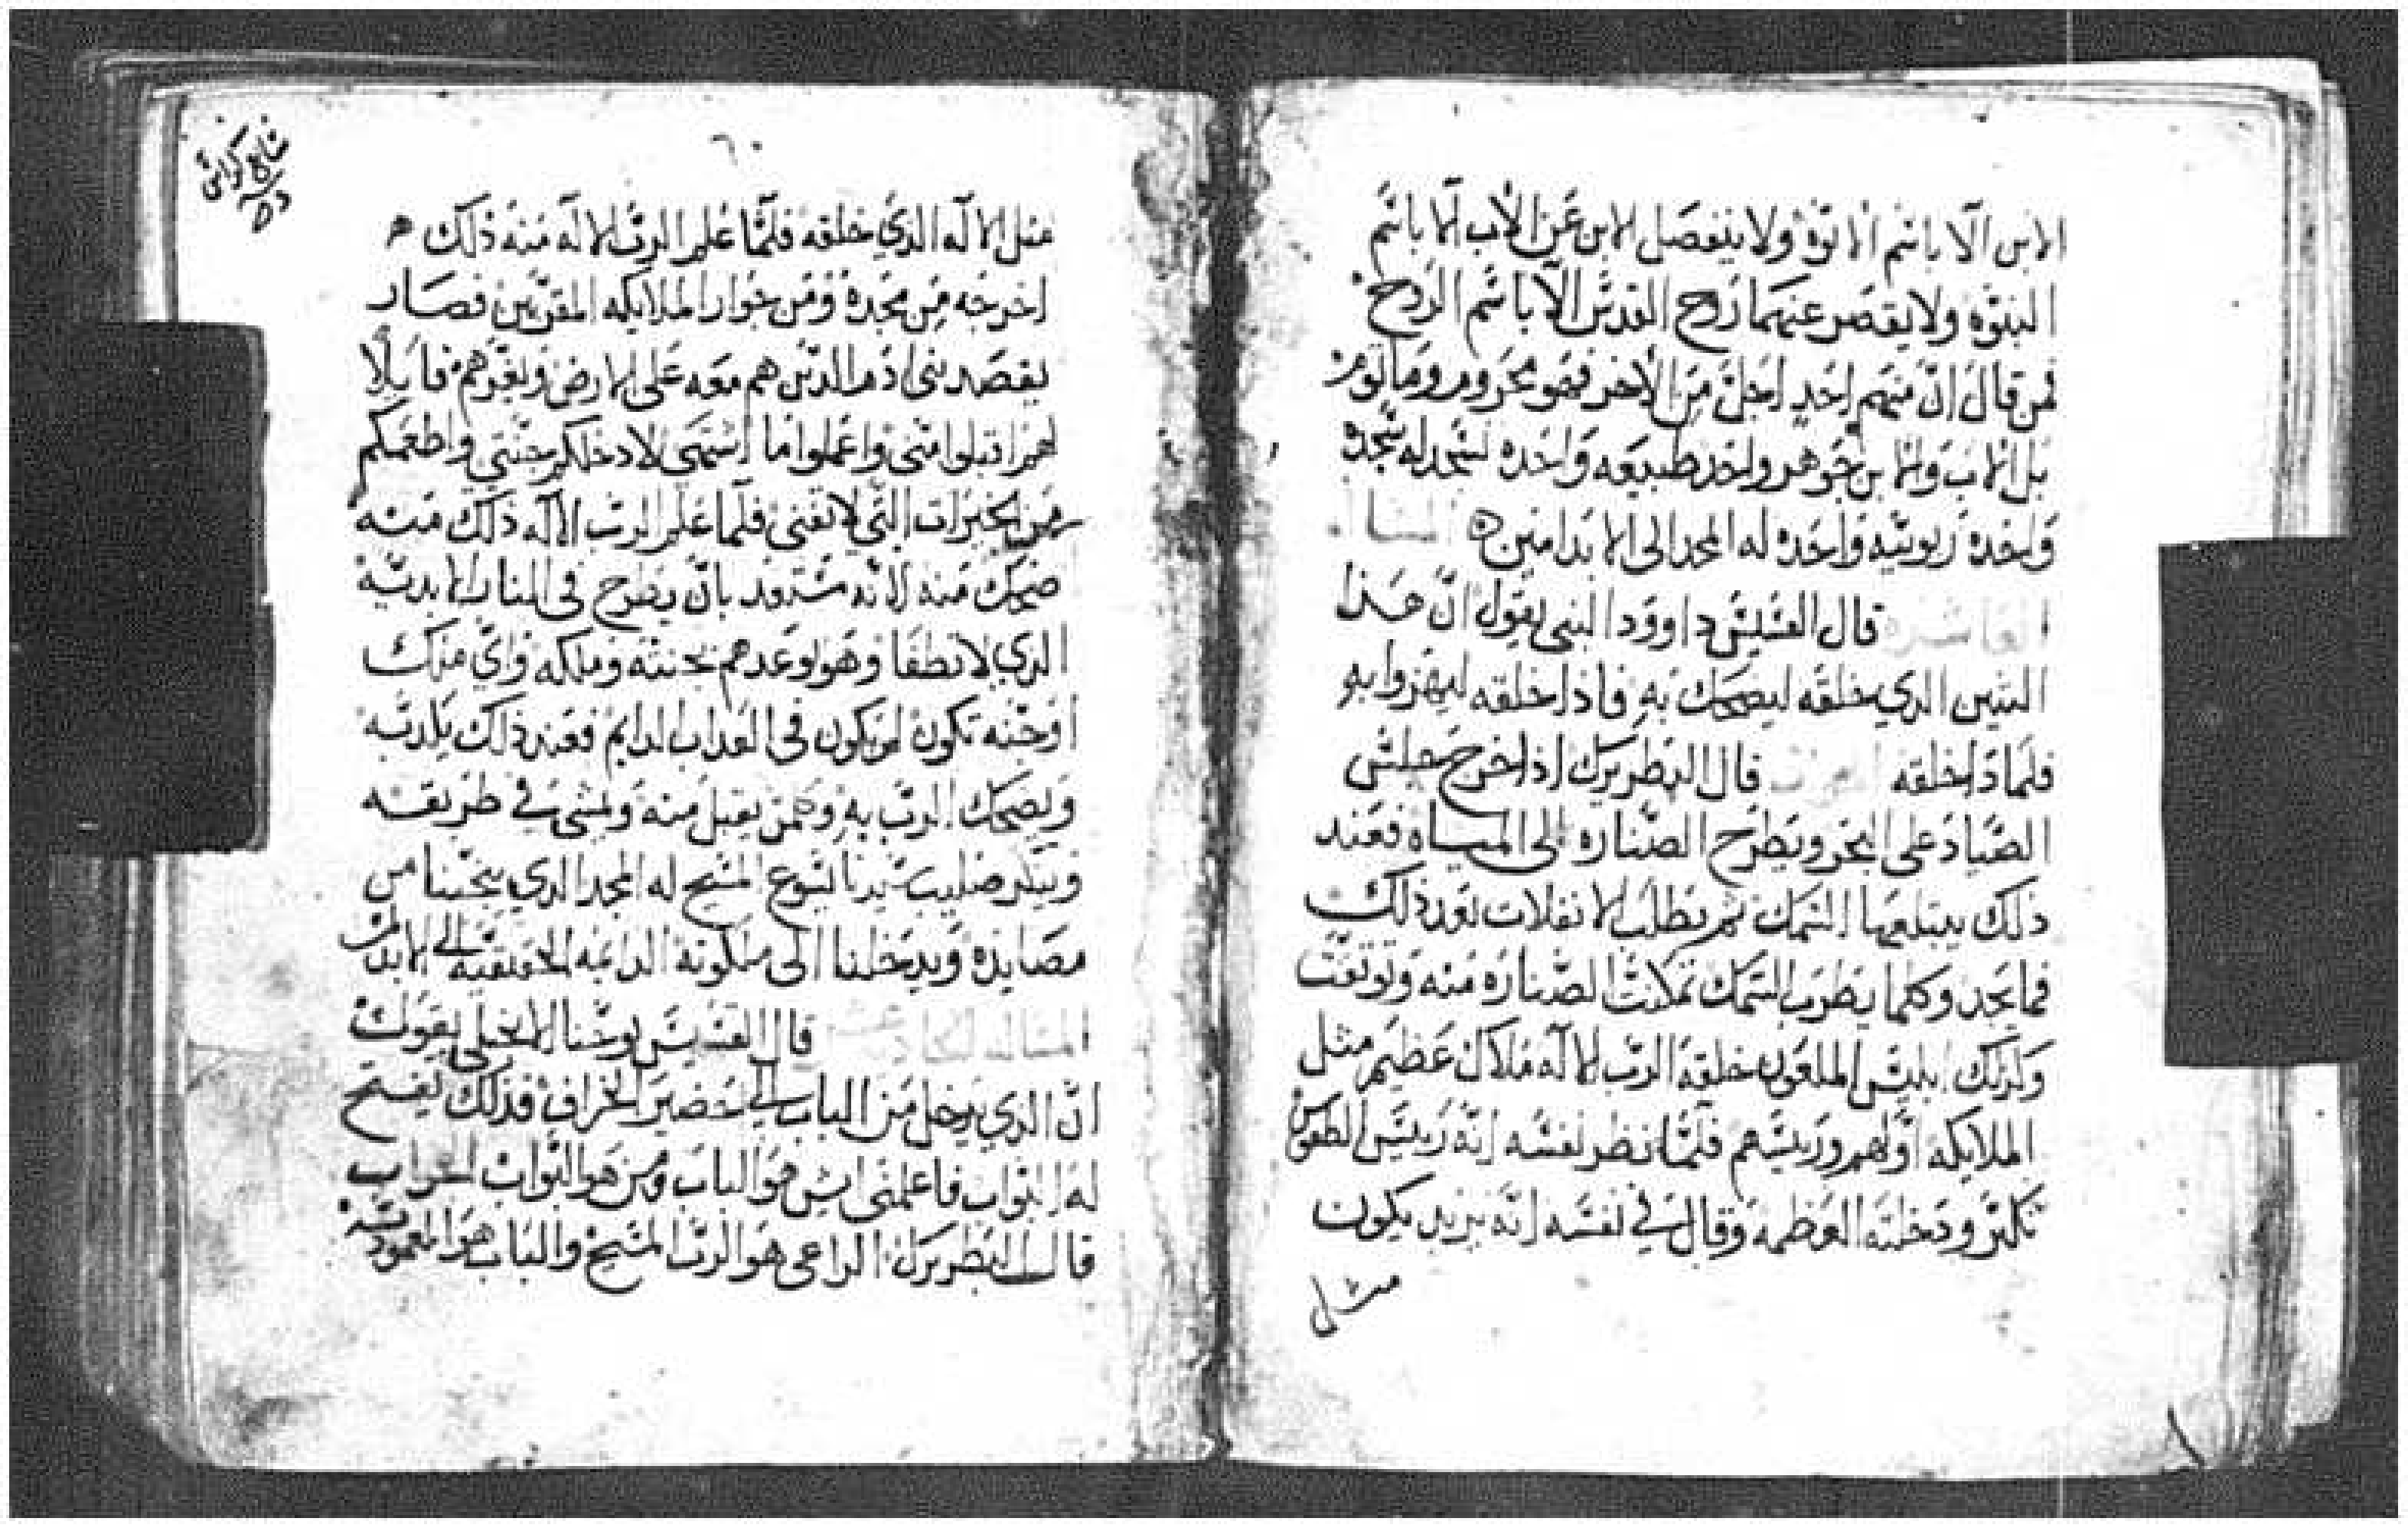 الابن الا باسم الابوة ولا ينفصل الابن عن الاب الا باسم
البنوة ولا يقصر عنهما روح القدس الا باسم الروح
فمن قال ان منهم احد اجل من الاخر فهو محروم ومالوم
بل الاب والابن جوهر واحد طبيعه واحده نسجد له سجده
واحده ربوبيه واحده له المجد الى الابد امين المساله
العاشره قال القديس داوود النبي يقول ان هذا
التنين الدي خلقه ليضحك به فاذا خلقه ليهزوا به
فلماذا خلقه الجواب قال البطريرك اذا خرج جلس
الصياد على البحر ويطرح الصناره الى المياه فعند
ذلك يبتلعها السمك ثم يطلب الانفلات بعد ذلك
فما يجد وكلما يضرب السمك تمكنت الصناره منه وتوثقت
ولدلك ابليس الملعون خلقه الرب الاله ملاك عظيم مثل
الملايكه اولهم ورييسهم فلما نظر نفسه انه رييس الطقوس
تكبر ودخلته العظمه وقال في نفسه انه يريد يكون
مثل
تاسع كراس
٦٠
مثل الاله الدي خلقه فلما علم الرب الاله منه ذلك
اخرجه من مجده ومن جوار الملايكه المقربين فصار
يقصد بني ادم الدين هم معه على الارض ويغرهم قايلا
لهم اقبلوا مني واعملوا ما اشتهي لادخلكم جنتي واطعمكم
من الخيرات التي لا تفنى فلما علم الرب الاله ذلك منه
ضحك منه لانه بان يطرح في النار الابديه
الدي لا تطفا وهو اوعدهم بجنته وملكه واي ملك
او جنه تكون لمن يكون في العداب الدايم فعند ذلك
ويضحك الرب به وبمن يقبل منه ويمشي في طريقه
صليب سيدنا اليسوع المسيح له المجد الدي ينجينا من
مصايده ويدخلنا الى ملكوته الدايمه الحقيقيه الى الابد
المساله الحاديه عشر قال القديس يوحنا الانجيلي يقول
ان الدي يدخل من الباب الى حضير الخراف فذلك يفتح
له البواب فاعلمني ايش هو الباب ومن هو البواب الجواب
قال البطريرك الراعي هو الرب المسيح والباب هو المعموديه